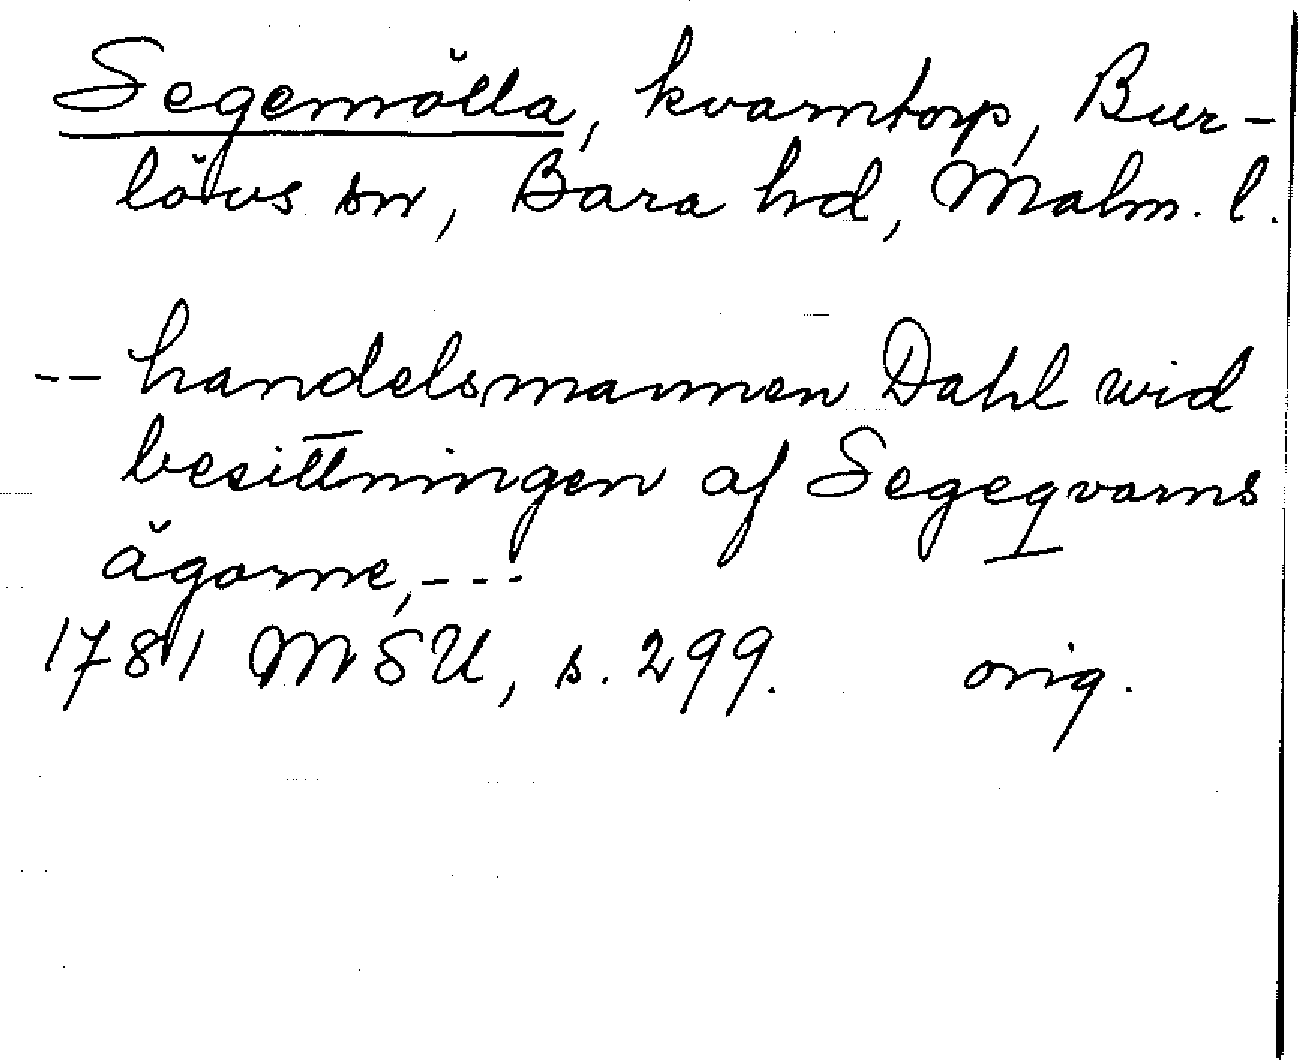 Segemölla, kvarntorp, Bur-
lövs sn, Bara hd, Malm. l.
-- handelsmannen Dahl wid
besittningen af Segeqvarns
ägorne, ---
1781 MSU, s. 299. orig.